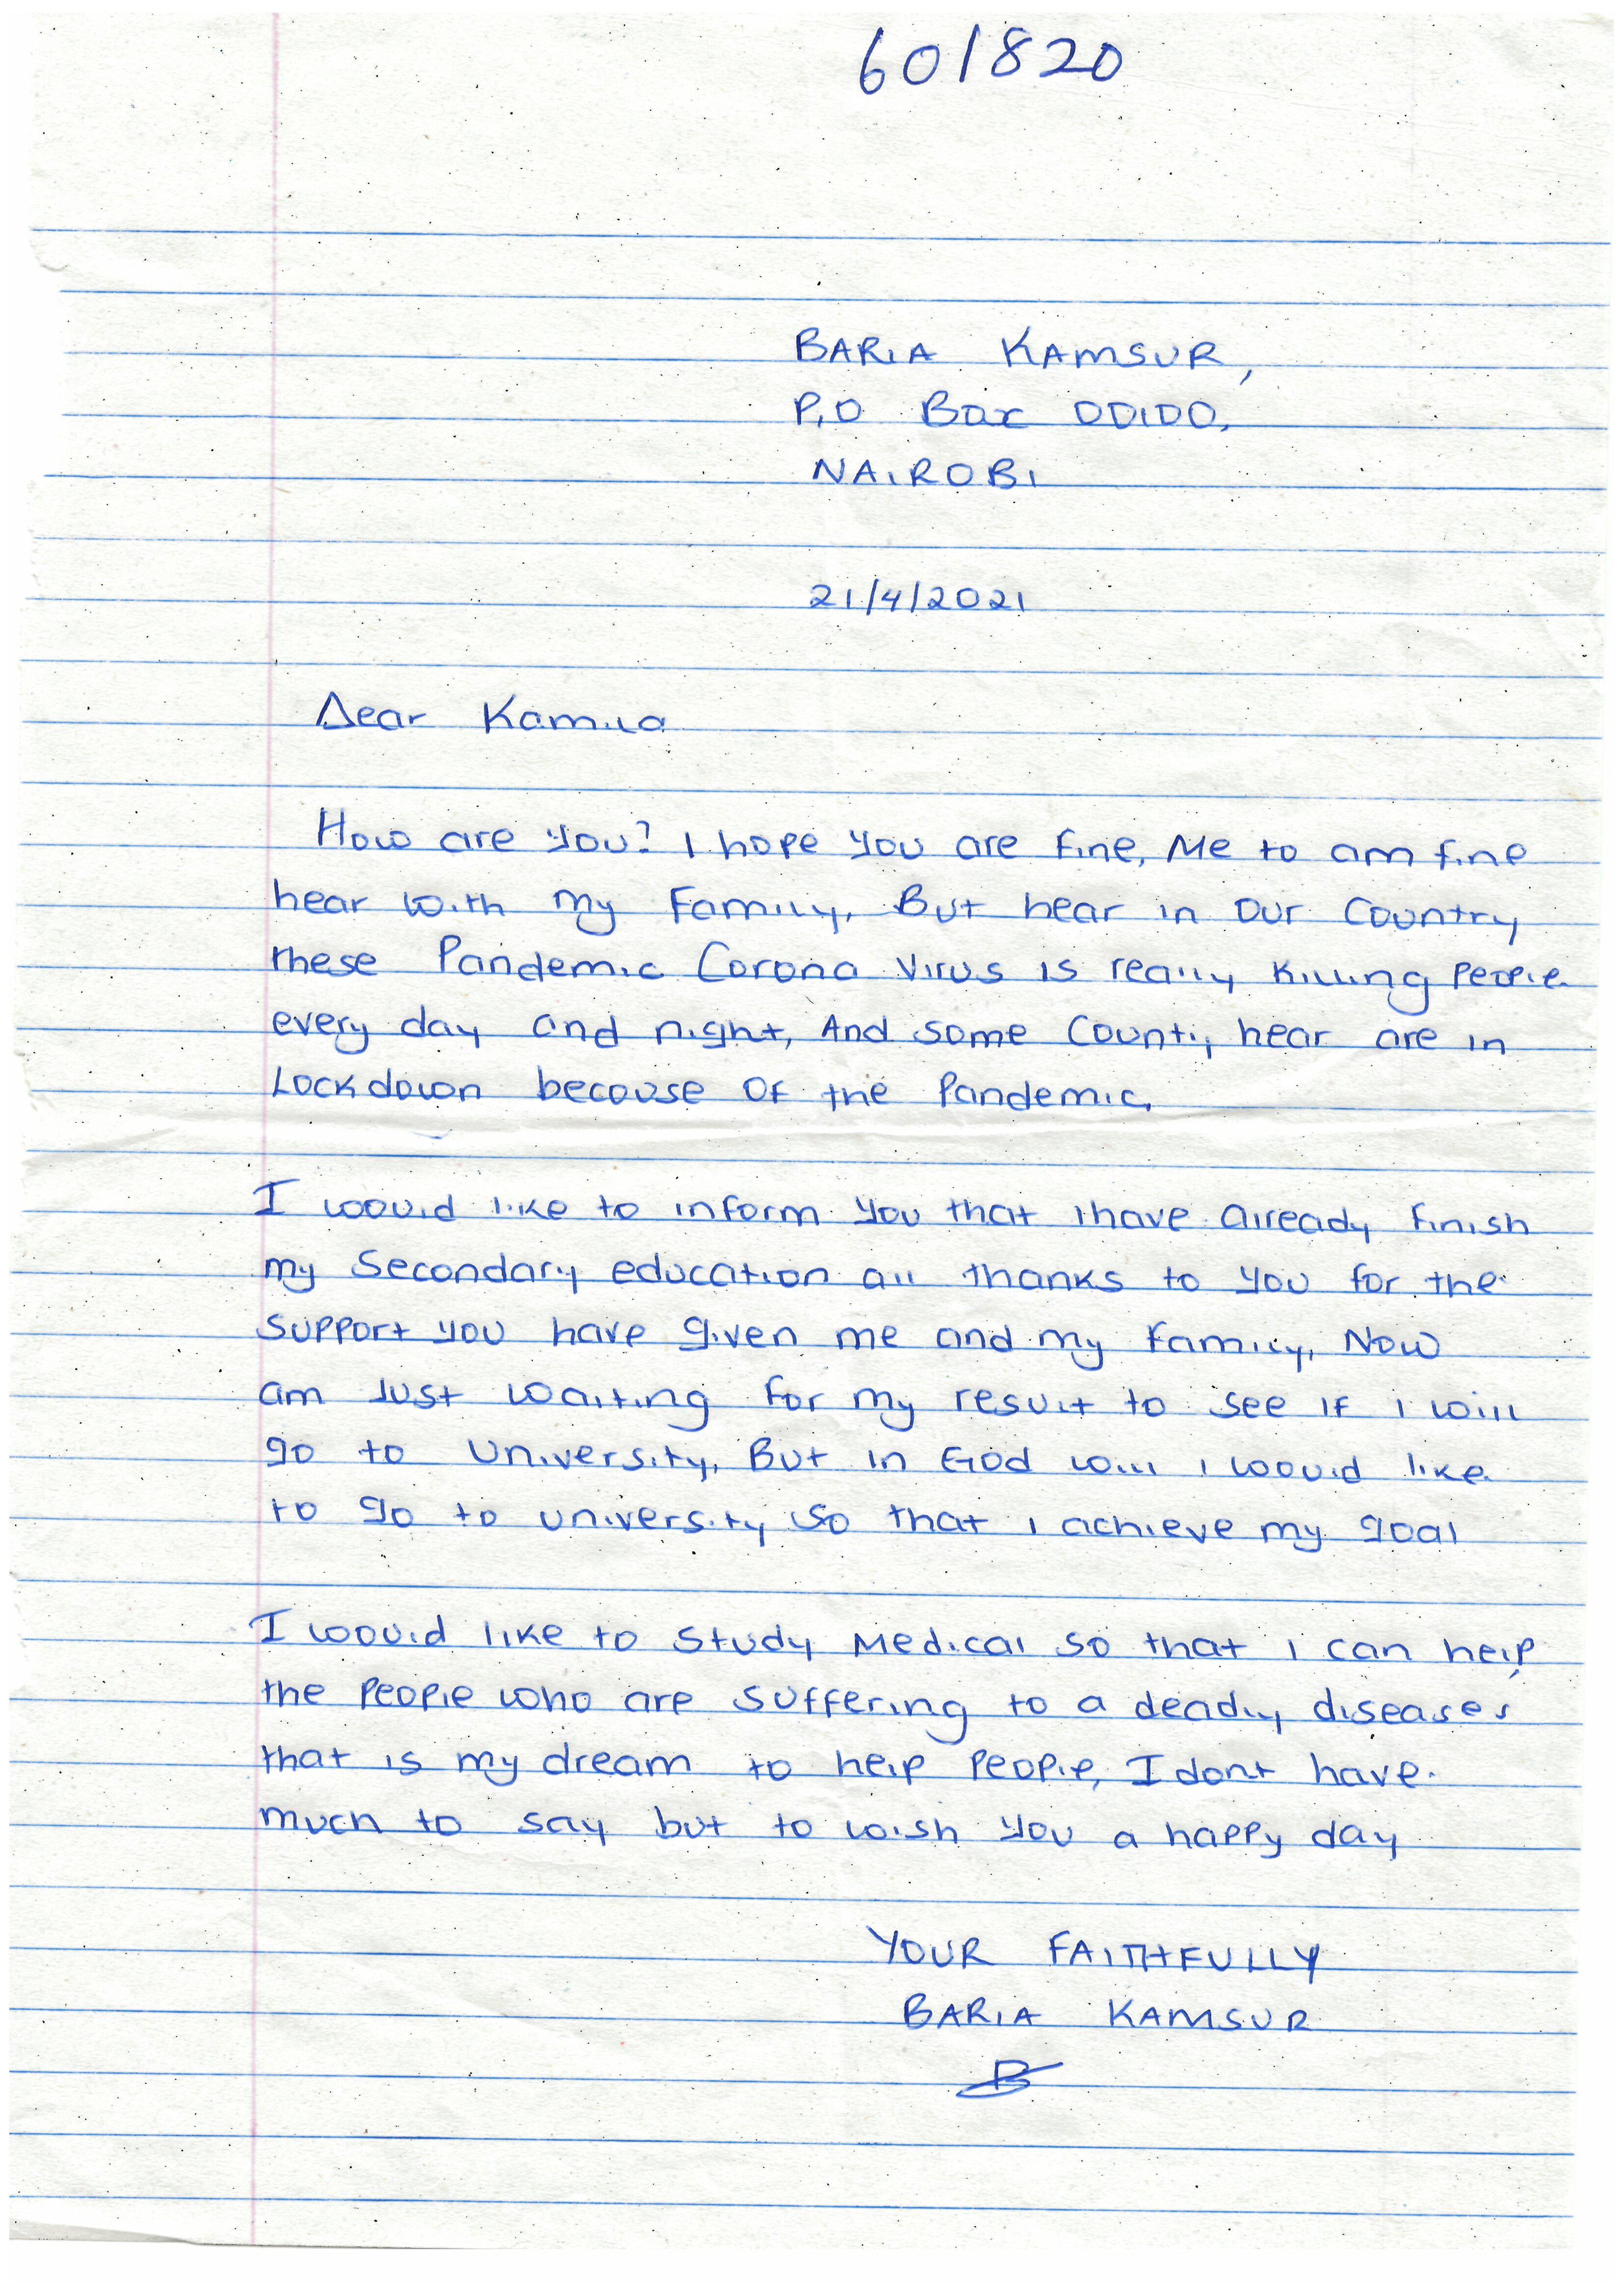 601820
BARIA KAMSUR,
P.O Box 00100,
NAIROBI
21/4/2021
Dear Kamila
How are you? I hope you are fine, Me to am fine
hear with my Family, But hear in our Country
these Pandemic Corona Virus is really killing people
every day and night, And some County hear are in
Lockdown because of the Pandemic.
I would like to inform you that I have already finish
my Secondary education all thanks to you for the
support you have given me and my family, Now
am Just waiting for my result to see if I will
go to University, But in God will I would like
to go to university So that I achieve my goal
I would like to study Medical so that I can help
the people who are suffering to a deadly diseases
that is my dream to help people, I dont have
much to say but to wish you a happy day
YOUR FAITHFULLY
BARIA KAMSUR
B